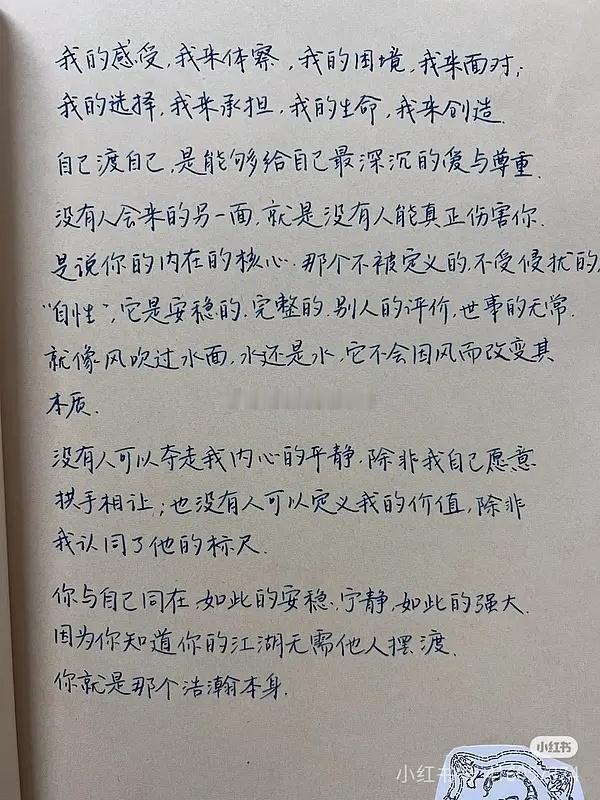 我的感受,我来体察,我的困境,我来面对;
我的选择,我来承担,我的生命,我来创造.
自己渡自己,是能够给自己最深沉的爱与尊重.
没有人会来的另一面,就是没有人能真正伤害你.
是说你的内在的核心.那个不被定义的,不受侵扰的,
“自性”,它是安稳的.完整的.别人的评价,世事的无常.
就像风吹过水面,水还是水,它不会因风而改变其
本质.
没有人可以夺走我内心的平静.除非我自己愿意
拱手相让;也没有人可以定义我的价值,除非
我认同了他的标尺.
你与自己同在.如此的安稳.宁静,如此的强大.
因为你知道你的江湖无需他人摆渡.
你就是那个浩瀚本身.
小红书
小红书